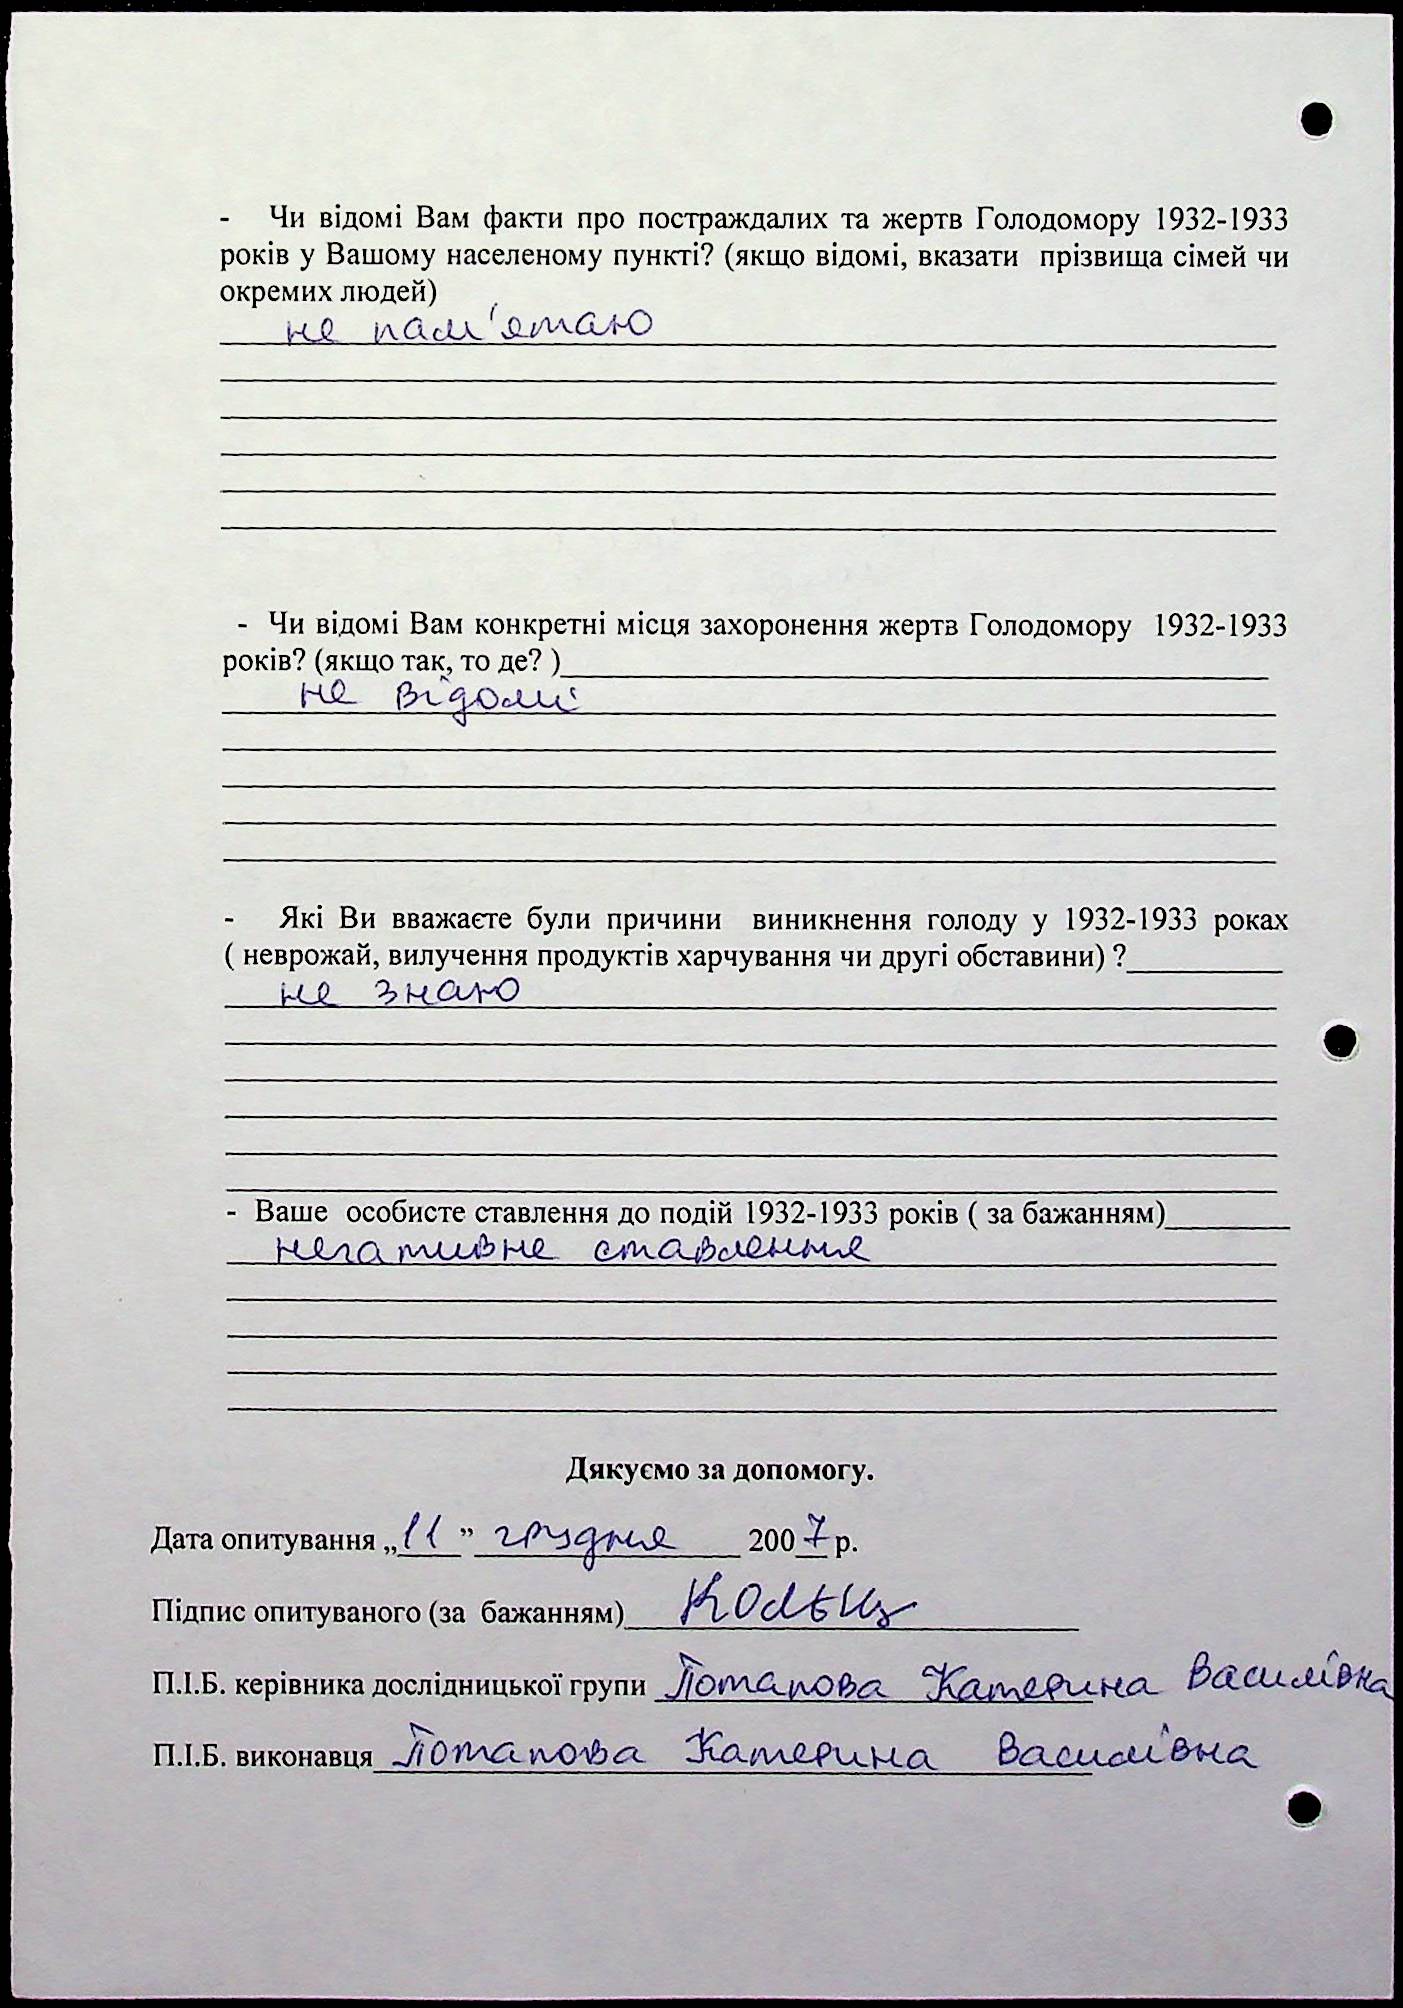 - Чи відомі Вам факти про постраждалих та жертв Голодомору 1932-1933
років у Вашому населеному пункті? (якщо відомі, вказати прізвища сімей чи
окремих людей)
не пам'ятаю
- Чи відомі Вам конкретні місця захоронення жертв Голодомору 1932-1933
років? (якщо так, то де? )
не відомі
- Які Ви вважаєте були причини виникнення голоду у 1932-1933 роках
( неврожай, вилучення продуктів харчування чи другі обставини) ?
не знаю
- Ваше особисте ставлення до подій 1932-1933 років ( за бажанням)
негативне ставлення
Дякуємо за допомогу.
Дата опитування „11” грудня 2007 р.
Підпис опитуваного (за бажанням)
П.І.Б. керівника дослідницької групи Потапова Катерина Василівна
П.І.Б. виконавця Потапова Катерина Василівна